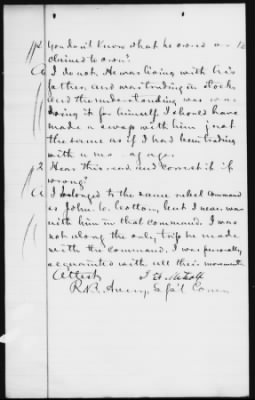 Q You don't know what he owned or 10
claimed to own?
A I do not. He was living with his
father, and was trading in stocks
and the understanding was was
doing it for himself. I should have
made a swap with him just
the same as if I had been trading
with a man of age.
Q Hear this read and correct it if
wrong?
A I belonged to the same rebel command
as John C. Cotton, but I never was
with him in that command. I was
not along the only trip he made
with the command. I was personally
acquainted with all their movements
Attest
R.B. Avery, Sp'l Com